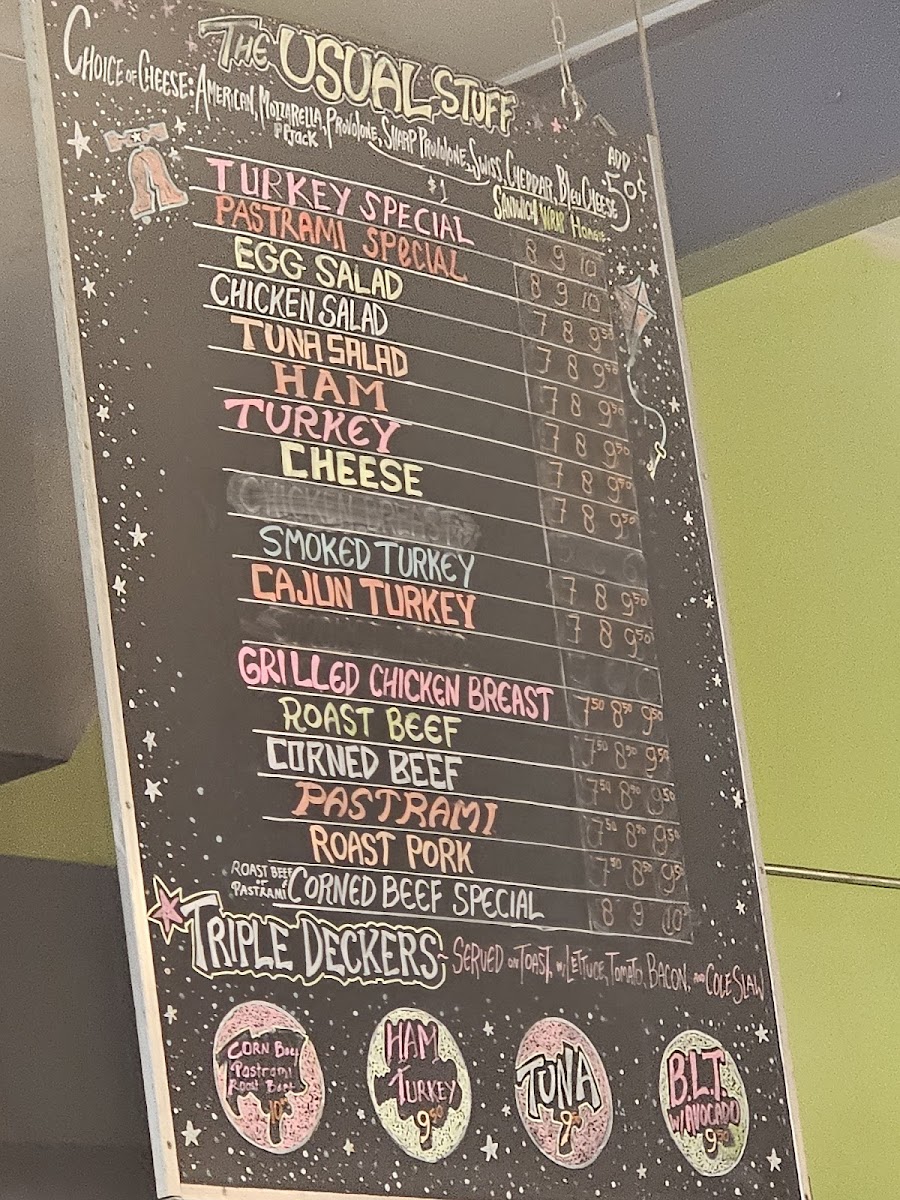 THE USUAL STUFF
CHOICE OF CHEESE: AMERICAN, MOZZARELLA, PROVOLONE, SHARP PROVOLONE, SWISS, CHEDDAR, BLEU CHEESE
PPJACK
ADD 50¢
$1
SANDWICH WRAP Hoagie
TURKEY SPECIAL 8 9 10
PASTRAMI SPECIAL 8 9 10
EGG SALAD 7 8 9⁵⁰
CHICKEN SALAD 7 8 9⁵⁰
TUNA SALAD 7 8 9⁵⁰
HAM 7 8 9⁵⁰
TURKEY 7 8 9⁵⁰
CHEESE 7 8 9⁵⁰
CHICKEN BREAST
SMOKED TURKEY 7 8 9⁵⁰
CAJUN TURKEY 7 8 9⁵⁰
GRILLED CHICKEN BREAST 7⁵⁰ 8⁵⁰ 9⁵⁰
ROAST BEEF 7⁵⁰ 8⁵⁰ 9⁵⁰
CORNED BEEF 7⁵⁰ 8⁵⁰ 9⁵⁰
PASTRAMI 7⁵⁰ 8⁵⁰ 9⁵⁰
ROAST PORK 7⁵⁰ 8⁵⁰ 9⁵⁰
ROAST BEEF OR PASTRAMI CORNED BEEF SPECIAL 8 9 10
TRIPLE DECKERS ~ SERVED ON TOAST, W/ LETTUCE, TOMATO, BACON, AND COLE SLAW
CORN Beef
Pastrami
Roast Beef
HAM
TURKEY
9⁵⁰
TUNA
9⁵⁰
B.L.T.
W/AVOCADO
9⁵⁰